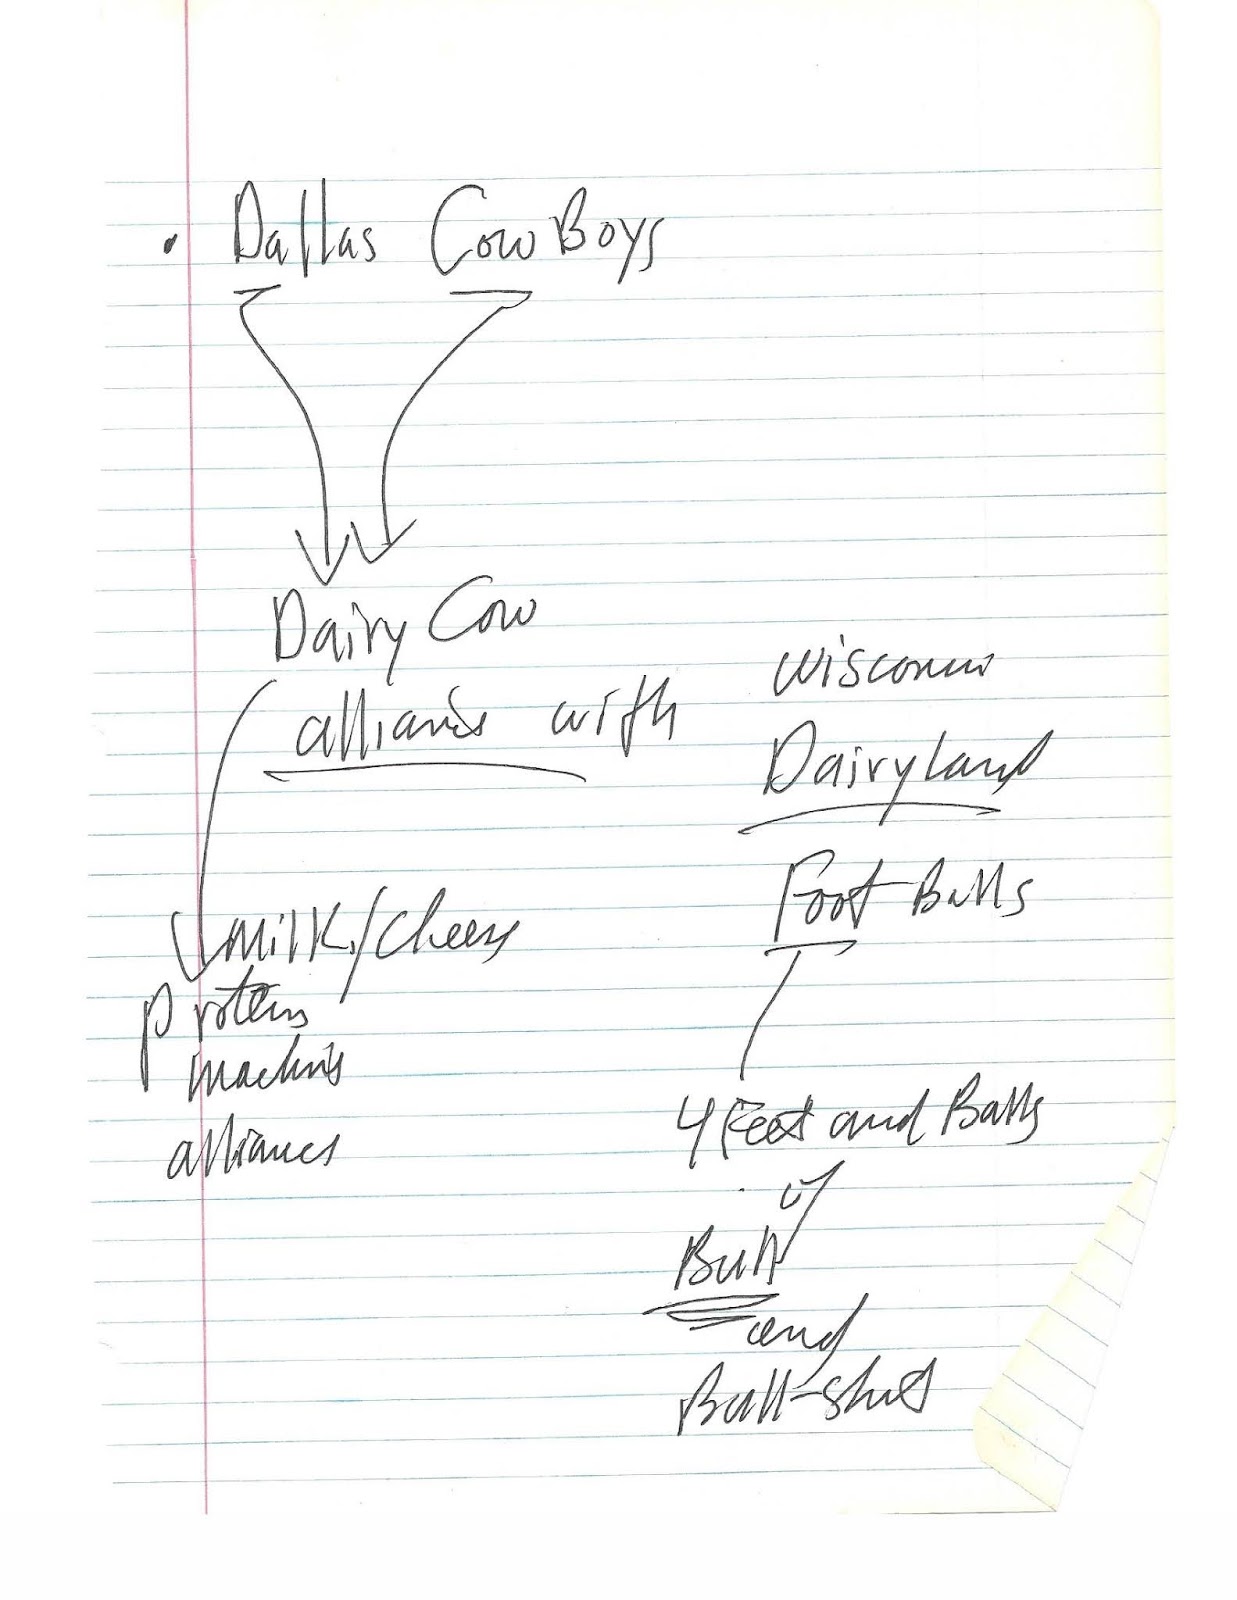 • Dallas CowBoys
Dairy Cow
alliance with
Wisconsin
Dairyland
Foot Balls
Milk/Cheese
Protein
machine
alliances
4 Feet and Balls
of
Bull
and